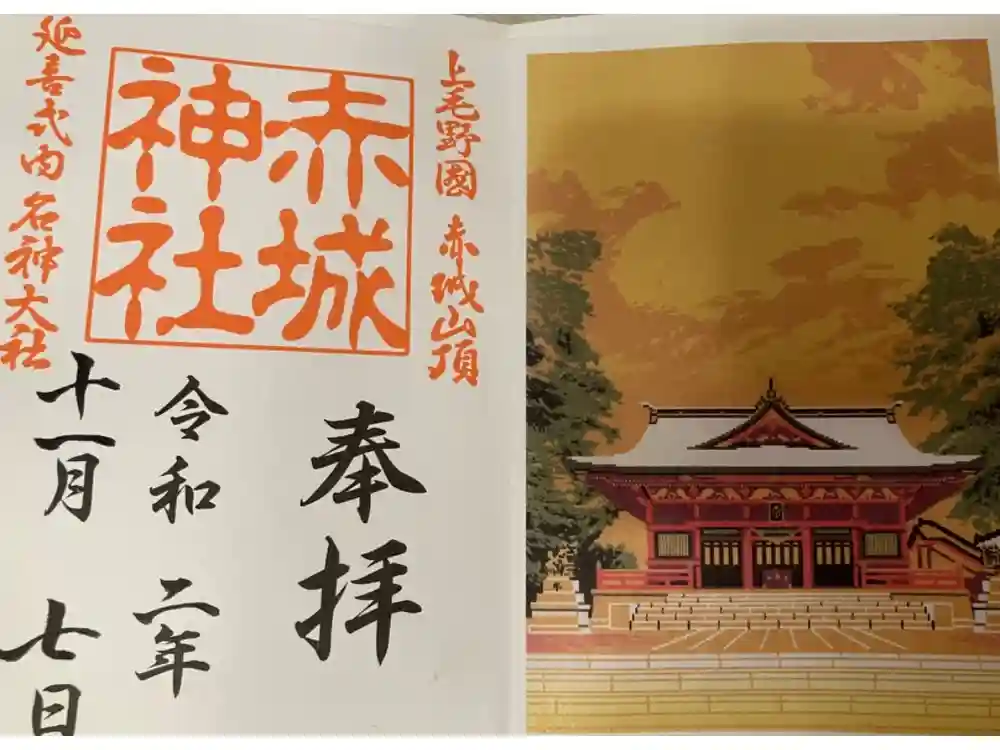 上毛野國 赤城山頂
赤城
神社
延喜式内 名神大社
奉拝
令和 二年
十一月 七日